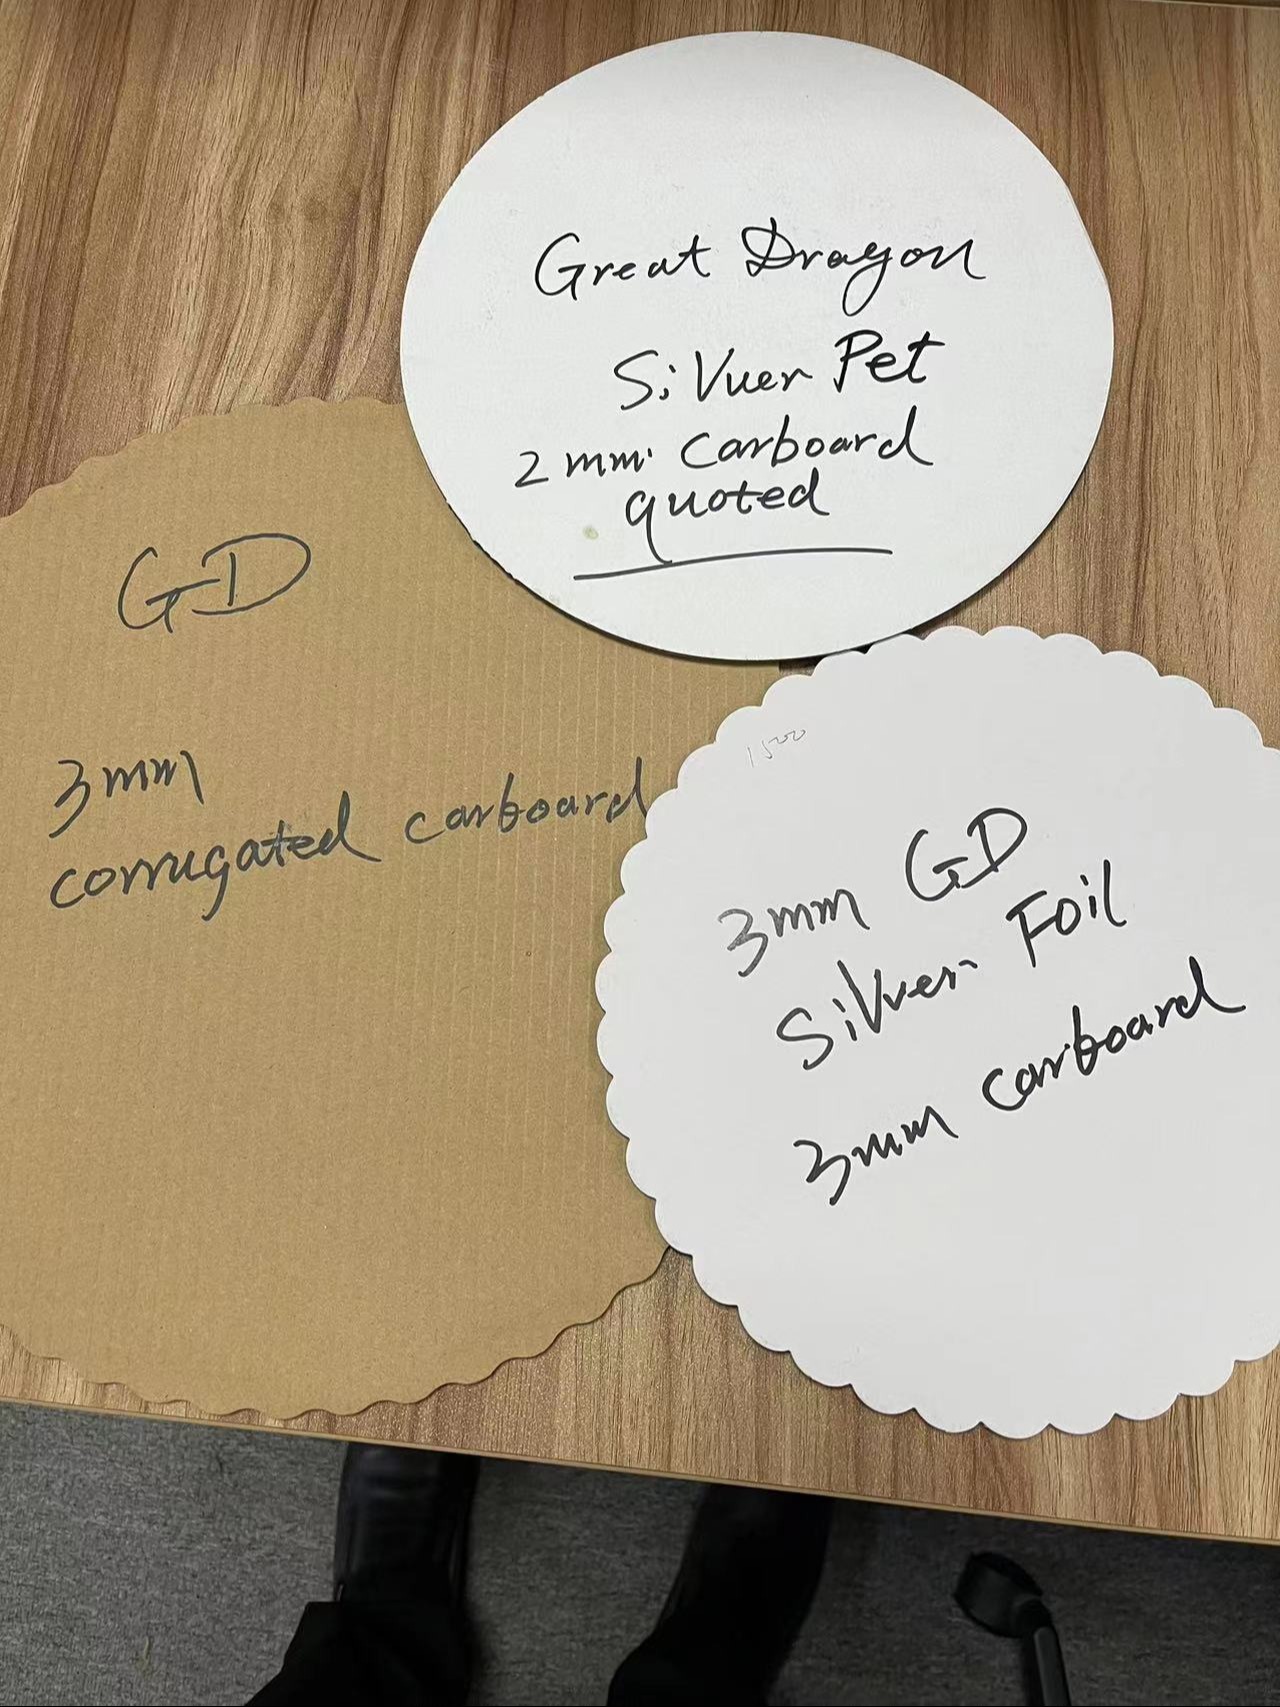 Great Dragon
SiVuer Pet
2 mm. Carboard
quoted
GD
3mm
corrugated carboard
1500
3mm GD
SiVver Foil
3mm carboard